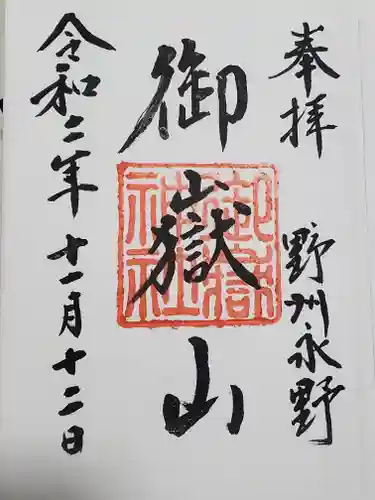 奉拝　野州永野
御嶽山
御嶽神社
令和二年十一月十二日